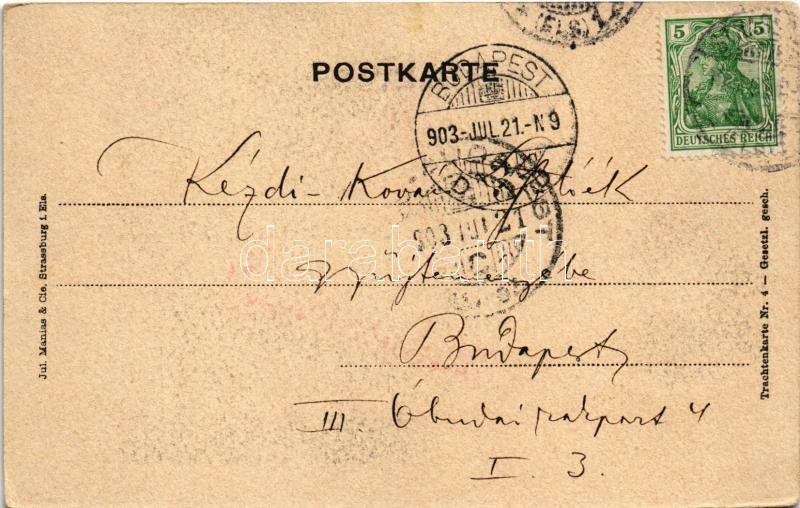 (ELS) 1
5 5
DEUTSCHES REICH
POSTKARTE
BUDAPEST
903-JUL.21.-N9
BUDAPEST
903 JUL 21
Kézdi-Kovács
gyűjteményébe
Budapest
III Óbudai rakpart 4
I. 3.
Jul. Manias & Cie. Strassburg i. Els.
Trachtenkarte Nr. 4 — Gesetzl. gesch.
darabanth